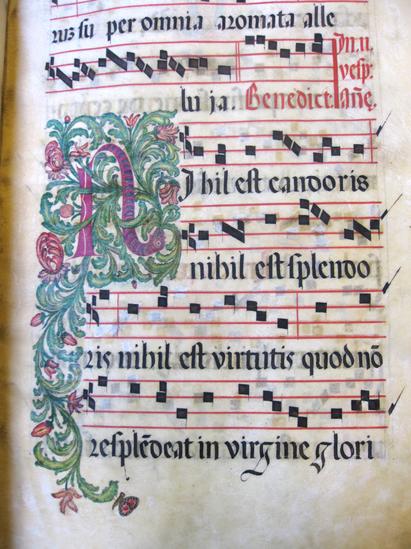 rus su per omnia aromata alle
Jn. ıı.
vesp:
lu ja. Benedict: Añe.
NJhil est candoris
nihil est splendo
ris nihil est virtutis quod nõ
resplẽdeat in virgine glori